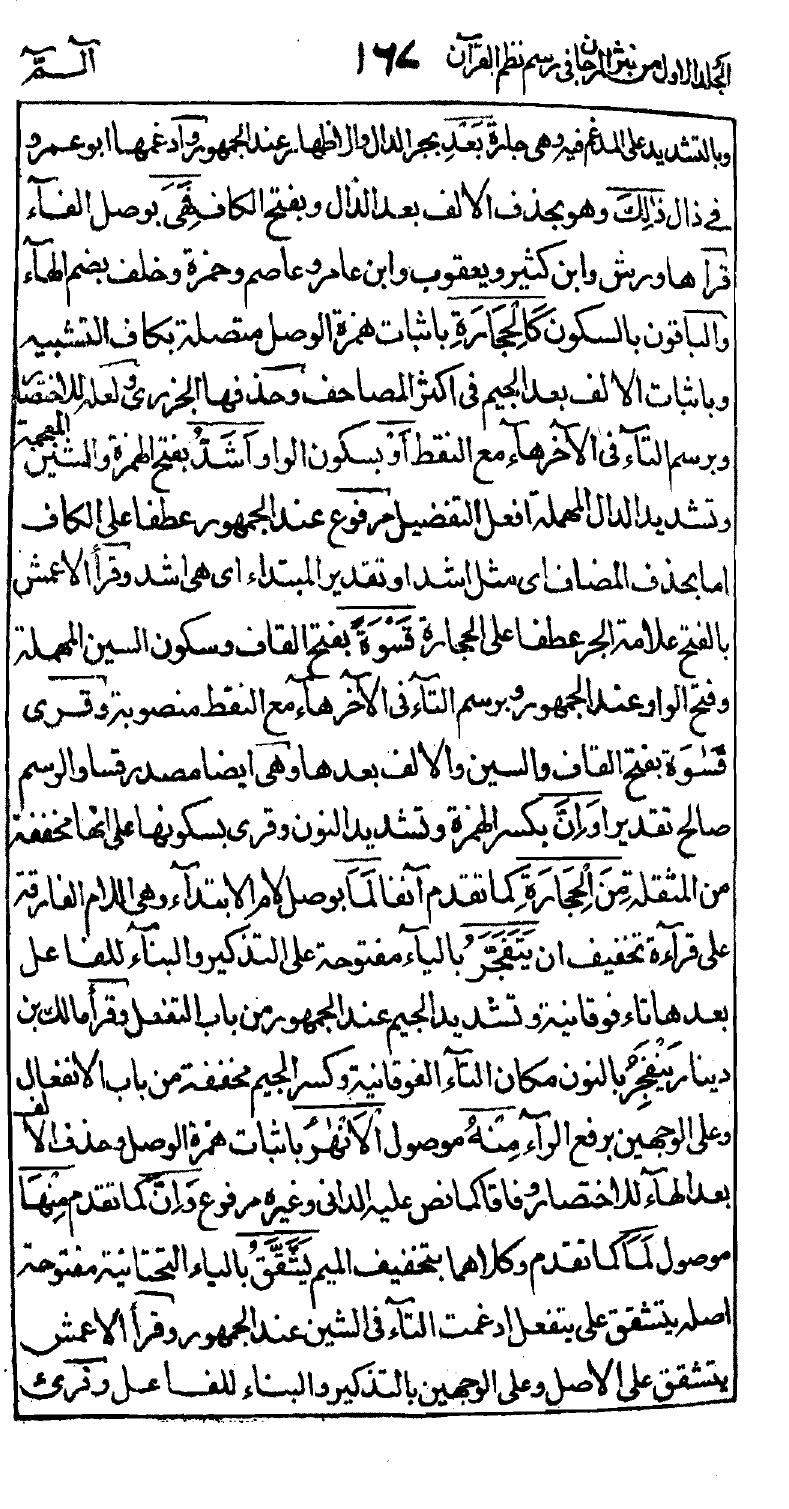 المجلد الاول من نثر المرجان فى رسم نظم القرآن ١٦٧ آلـــمّ
وبالتشديد على المدغم فيه وهى جارة بَعْدِ بجر الدال والاظهار عند الجمهور وادغمها ابو عمرو
فے ذال ذٰلِكَ وهو بحذف الالف بعد الذال وبفتح الكاف فَهِىَ بوصل الفآء
قرأها ورش وابن كثير ويعقوب وابن عامر وعاصم وحمزة وخلف بضم الهآء
والباقون بالسكون كَالْحِجَارَةِ باثبات همزة الوصل متصلة بكاف التشبيه
وباثبات الالف بعد الجيم فى اكثر المصاحف وحذفها الجزرى ولعله للاختصار
وبرسم التآء فى الآخر هآء مع النقط اَوْ بسكون الواو اَشَدُّ بفتح الهمزة والشين المعجمة
وتشديد الدال المهملة افعل التفضيل مرفوع عند الجمهور عطفا على الكاف
اما بحذف المضاف اى مثل اشد او تقدير المبتداء اى هى اشد وقرأ الاعمش
بالفتح علامة الجر عطفا على الحجارة قَسْوَةً بفتح القاف وسكون السين المهملة
وفتح الواو عند الجمهور وبرسم التآء فى الآخر هآء مع النقط منصوبة وقـرى
قَسَاوَة بفتح القاف والسين والالف بعدها وهى ايضا مصدر قسا والرسم
صالح تقديرا وَاِنَّ بكسر الهمزة وتشديد النون وقرى بسكونها على انها مخففة
من المثقلة مِنَ الْحِجَارَةِ كما تقدم آنفا لَمَا بوصل لام الابتدآء وهى اللام الفارقة
على قرآءة تخفيف ان يَتَفَجَّرُ بالياء مفتوحة على التذكير والبنآء للفاعل
بعدها تاء فوقانية وتشديد الجيم عند الجمهور من باب التفعل وقرأ مالك بن
دينار يَنْفَجِرُ بالنون مكان التآء الفوقانية وكسر الجيم مخففة من باب الانفعال
وعلى الوجهين برفع الرآء مِنْهُ موصول الْاَنْهٰرُ باثبات همزة الوصل وحذف الالف
بعد الهآء للاختصار وفاقا كما نص عليه الدانى وغيره مرفوع وَاِنَّ كما تقدم مِنْهَا
موصول لَمَا كما تقدم وكلاهما بتخفيف الميم يَشَّقَّقُ بالياء التحتانية مفتوحة
اصله يتشقق على يتفعل ادغمت التآء فى الشين عند الجمهور وقرأ الاعمش
يتشقق على الاصل وعلى الوجهين بالتذكير والبناء للفاعل وقرئ